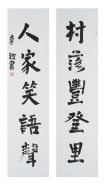 村落豐登里
人家笑語聲